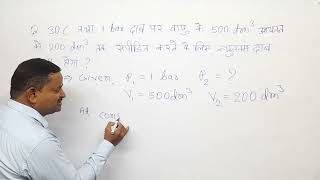 Q. 30°C तथा 1 bar दाब पर वायु के 500 dm³ आयतन
को 200 dm³ तक संपीडित करने के लिए न्यूनतम दाब
होगा ?
⇒ Given, P₁ = 1 bar P₂ = ?
V₁ = 500 dm³ V₂ = 200 dm³
At cons